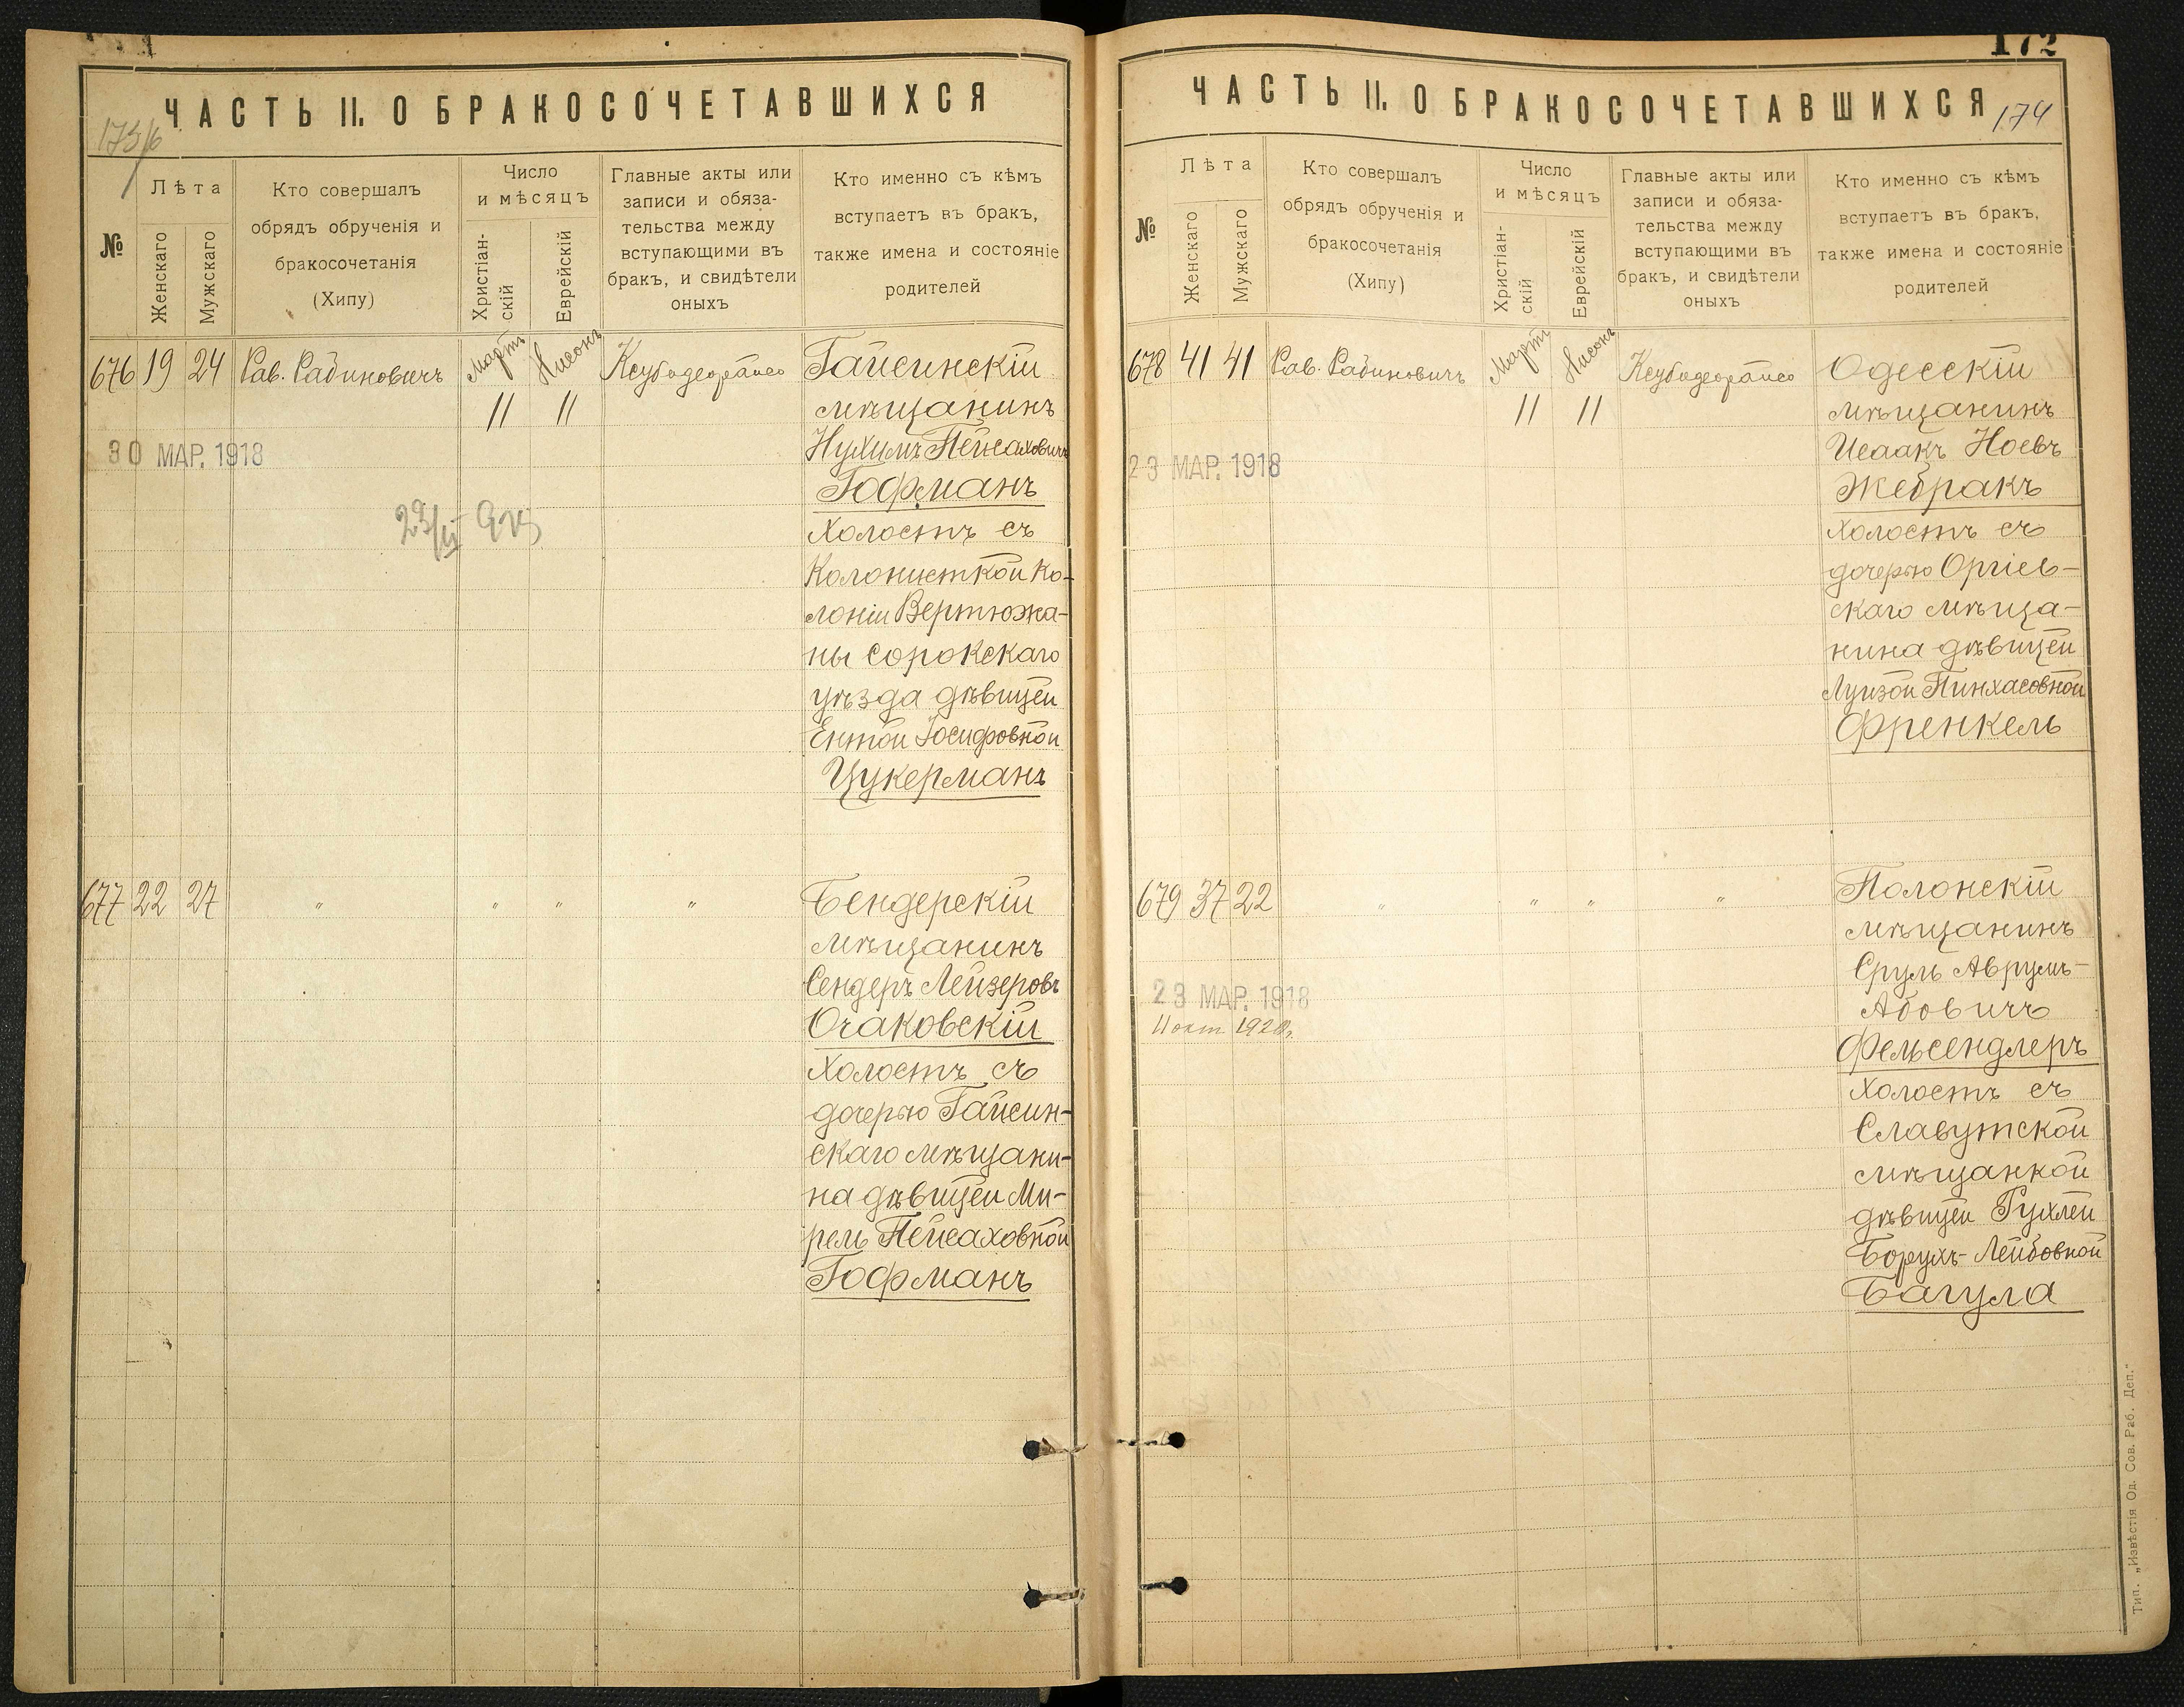 ЧАСТЬ II. О БРАКОСОЧЕТАВШИХСЯ
№
Лѣта
Женскаго
Мужскаго
Кто совершалъ
обрядъ обрученія и
бракосочетанія
(Хипу)
Число
и мѣсяцъ
Христіан-
скій
Еврейскій
Главные акты или
записи и обяза-
тельства между
вступающими въ
бракъ, и свидѣтели
оныхъ
Кто именно съ кѣмъ
вступаетъ въ бракъ,
также имена и состояніе
родителей
676 19 24 Рав. Рабиновичъ Мартъ Нисонъ Ксубидеорайсо Гайсинскій
11 11 мѣщанинъ
30 МАР. 1918
Нухимъ Пейсаховичъ
Гофманъ
холостъ съ
Колонисткой Ко-
лоніи Вертюжа-
ны Сорокскаго
уѣзда дѣвицей
Ентой Іосифовной
Цукерманъ
677 22 27 " " " " Бендерскій
мѣщанинъ
Сендеръ Лейзеровъ
Очаковскій
холостъ съ
дочерью Гайсин-
скаго мѣщани-
на дѣвицей Ми-
рель Пейсаховной
Гофманъ
172
ЧАСТЬ II. О БРАКОСОЧЕТАВШИХСЯ
174
№
Лѣта
Женскаго
Мужскаго
Кто совершалъ
обрядъ обрученія и
бракосочетанія
(Хипу)
Число
и мѣсяцъ
Христіан-
скій
Еврейскій
Главные акты или
записи и обяза-
тельства между
вступающими въ
бракъ, и свидѣтели
оныхъ
Кто именно съ кѣмъ
вступаетъ въ бракъ,
также имена и состояніе
родителей
678 41 41 Рав. Рабиновичъ Мартъ Нисонъ Ксубидеорайсо Одесскій
11 11 мѣщанинъ
23 МАР. 1918
Исаакъ Ноевъ
Жебракъ
холостъ съ
дочерью Оргіев-
скаго мѣща-
нина дѣвицей
Луизой Пинхасовной
Френкель
679 37 22 " " " " Полонскій
мѣщанинъ
Сруль Аврумъ-
Абовичъ
23 МАР. 1918
11 окт. 1920
Фельсендлеръ
холостъ съ
Славутской
мѣщанкой
дѣвицей Рухлей
Борухъ-Лейбовной
Багула
Тип. „Извѣстія Од. Сов. Раб. Деп."